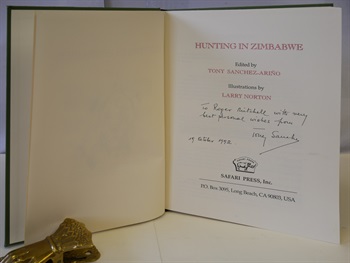 HUNTING IN ZIMBABWE
Edited by
TONY SANCHEZ-ARIÑO
Illustrations by
LARRY NORTON
To Roger Mitchell with very
best personal wishes from
Tony Sanchez
19 October 1992
SAFARI PRESS, Inc.
P.O. Box 3095, Long Beach, CA 90803, USA